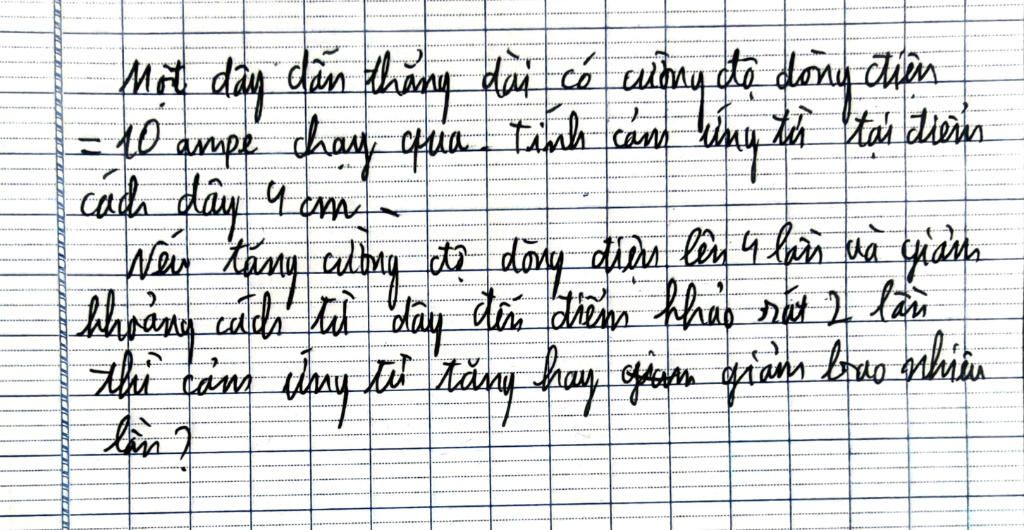 Một dây dẫn thẳng dài có cường độ dòng điện
= 10 ampe chạy qua. Tính cảm ứng từ tại điểm
cách dây 4 cm.
Nếu tăng cường độ dòng điện lên 4 lần và giảm
khoảng cách từ dây đến điểm khảo sát 2 lần
thì cảm ứng từ tăng hay giảm bao nhiêu
lần?